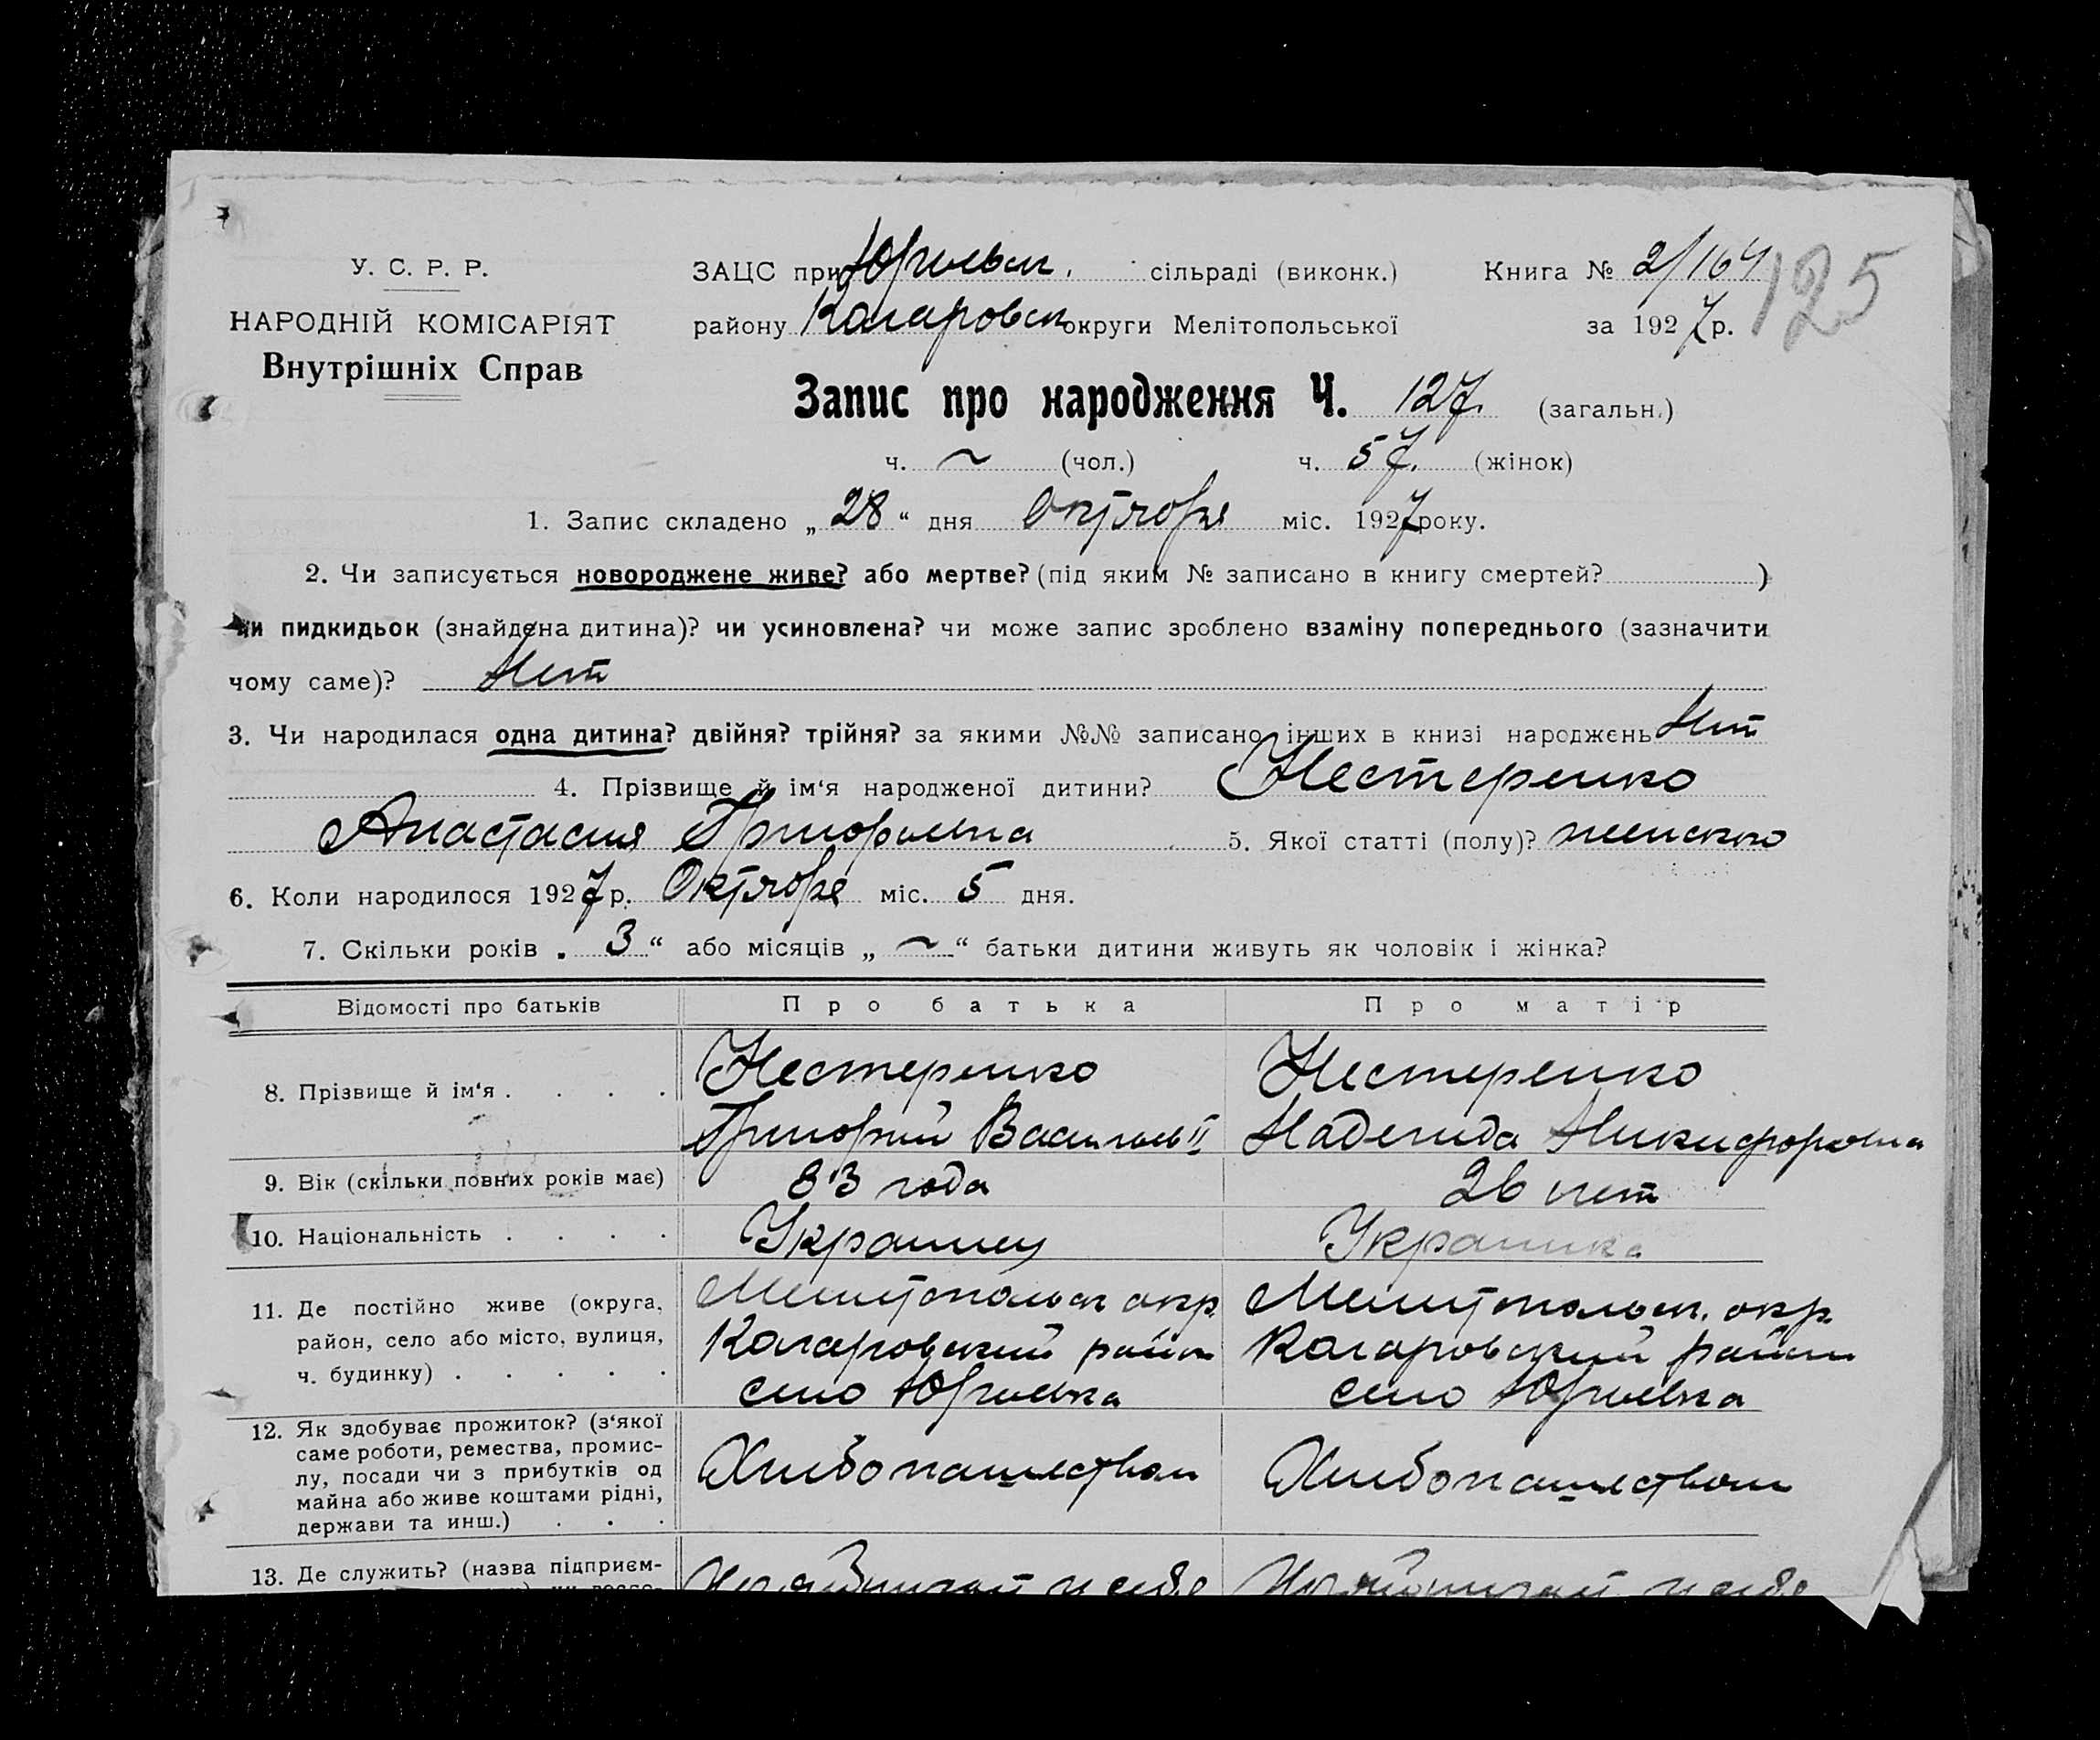 У. С. Р. Р.
НАРОДНІЙ КОМІСАРІЯТ
Внутрішніх Справ
ЗАЦС при Юрьевск. сільраді (виконк.)
Книга № 2/164
125
району округи Мелітопольської
за 1927 р.
Запис про народження Ч. 127. (загальн.)
ч. ~ (чол.) ч. 57. (жінок)
1. Запис складено „28“ дня Октября міс. 1927 року.
2. Чи записується новороджене живе? або мертве? (під яким № записано в книгу смертей? )
чи пидкидьок (знайдена дитина)? чи усиновлена? чи може запис зроблено взаміну попереднього (зазначити
чому саме)? Нет
3. Чи народилася одна дитина? двійня? трійня? за якими №№ записано інших в книзі народжень Нет
4. Прізвище й ім‘я народженої дитини? Нестеренко
Анастасия Григорьевна 5. Якої статті (полу)? женского
6. Коли народилося 1927 р. Октября міс. 5 дня.
7. Скільки років „ 3 “ або місяців „ ~ “ батьки дитини живуть як чоловік і жінка?
Відомості про батьків Про батька Про матір
8. Прізвище й ім‘я . . . .
Нестеренко
Григорий Васильев
Нестеренко
Надежда Никифоровна
9. Вік (скільки повних років має) 33 года 26 лет
10. Національність . . . . Украинец Украинка
11. Де постійно живе (округа,
район, село або місто, вулиця,
ч. будинку) . . . . .
Мелитопольск окр.
район
село Юрьевка
Мелитопольск. окр.
район
село Юрьевка
12. Як здобуває прожиток? (з‘якої
саме роботи, ремества, промис-
лу, посади чи з прибутків од
майна або живе коштами рідні,
держави та инш.) . . .
Хлебопашеством
Хлебопашеством
13. Де служить? (назва підприєм-